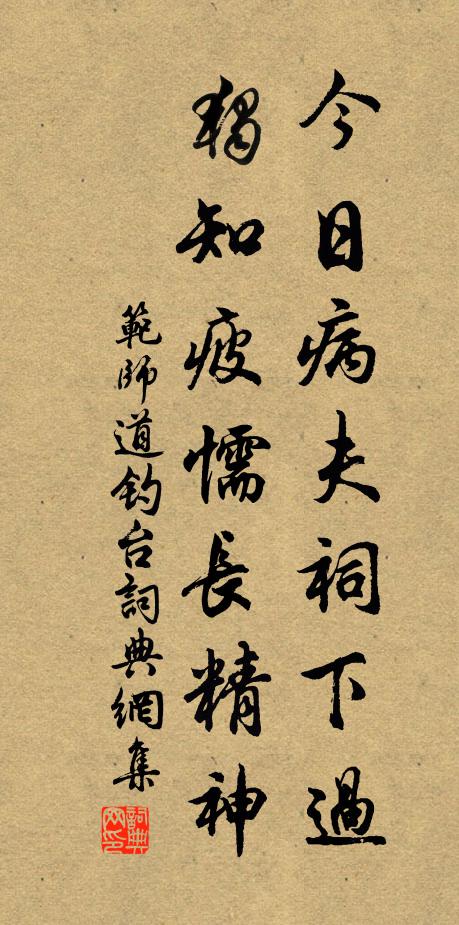 今日病夫祠下過
獨知疲懦長精神
範師道釣台詞典網集
詞典網印